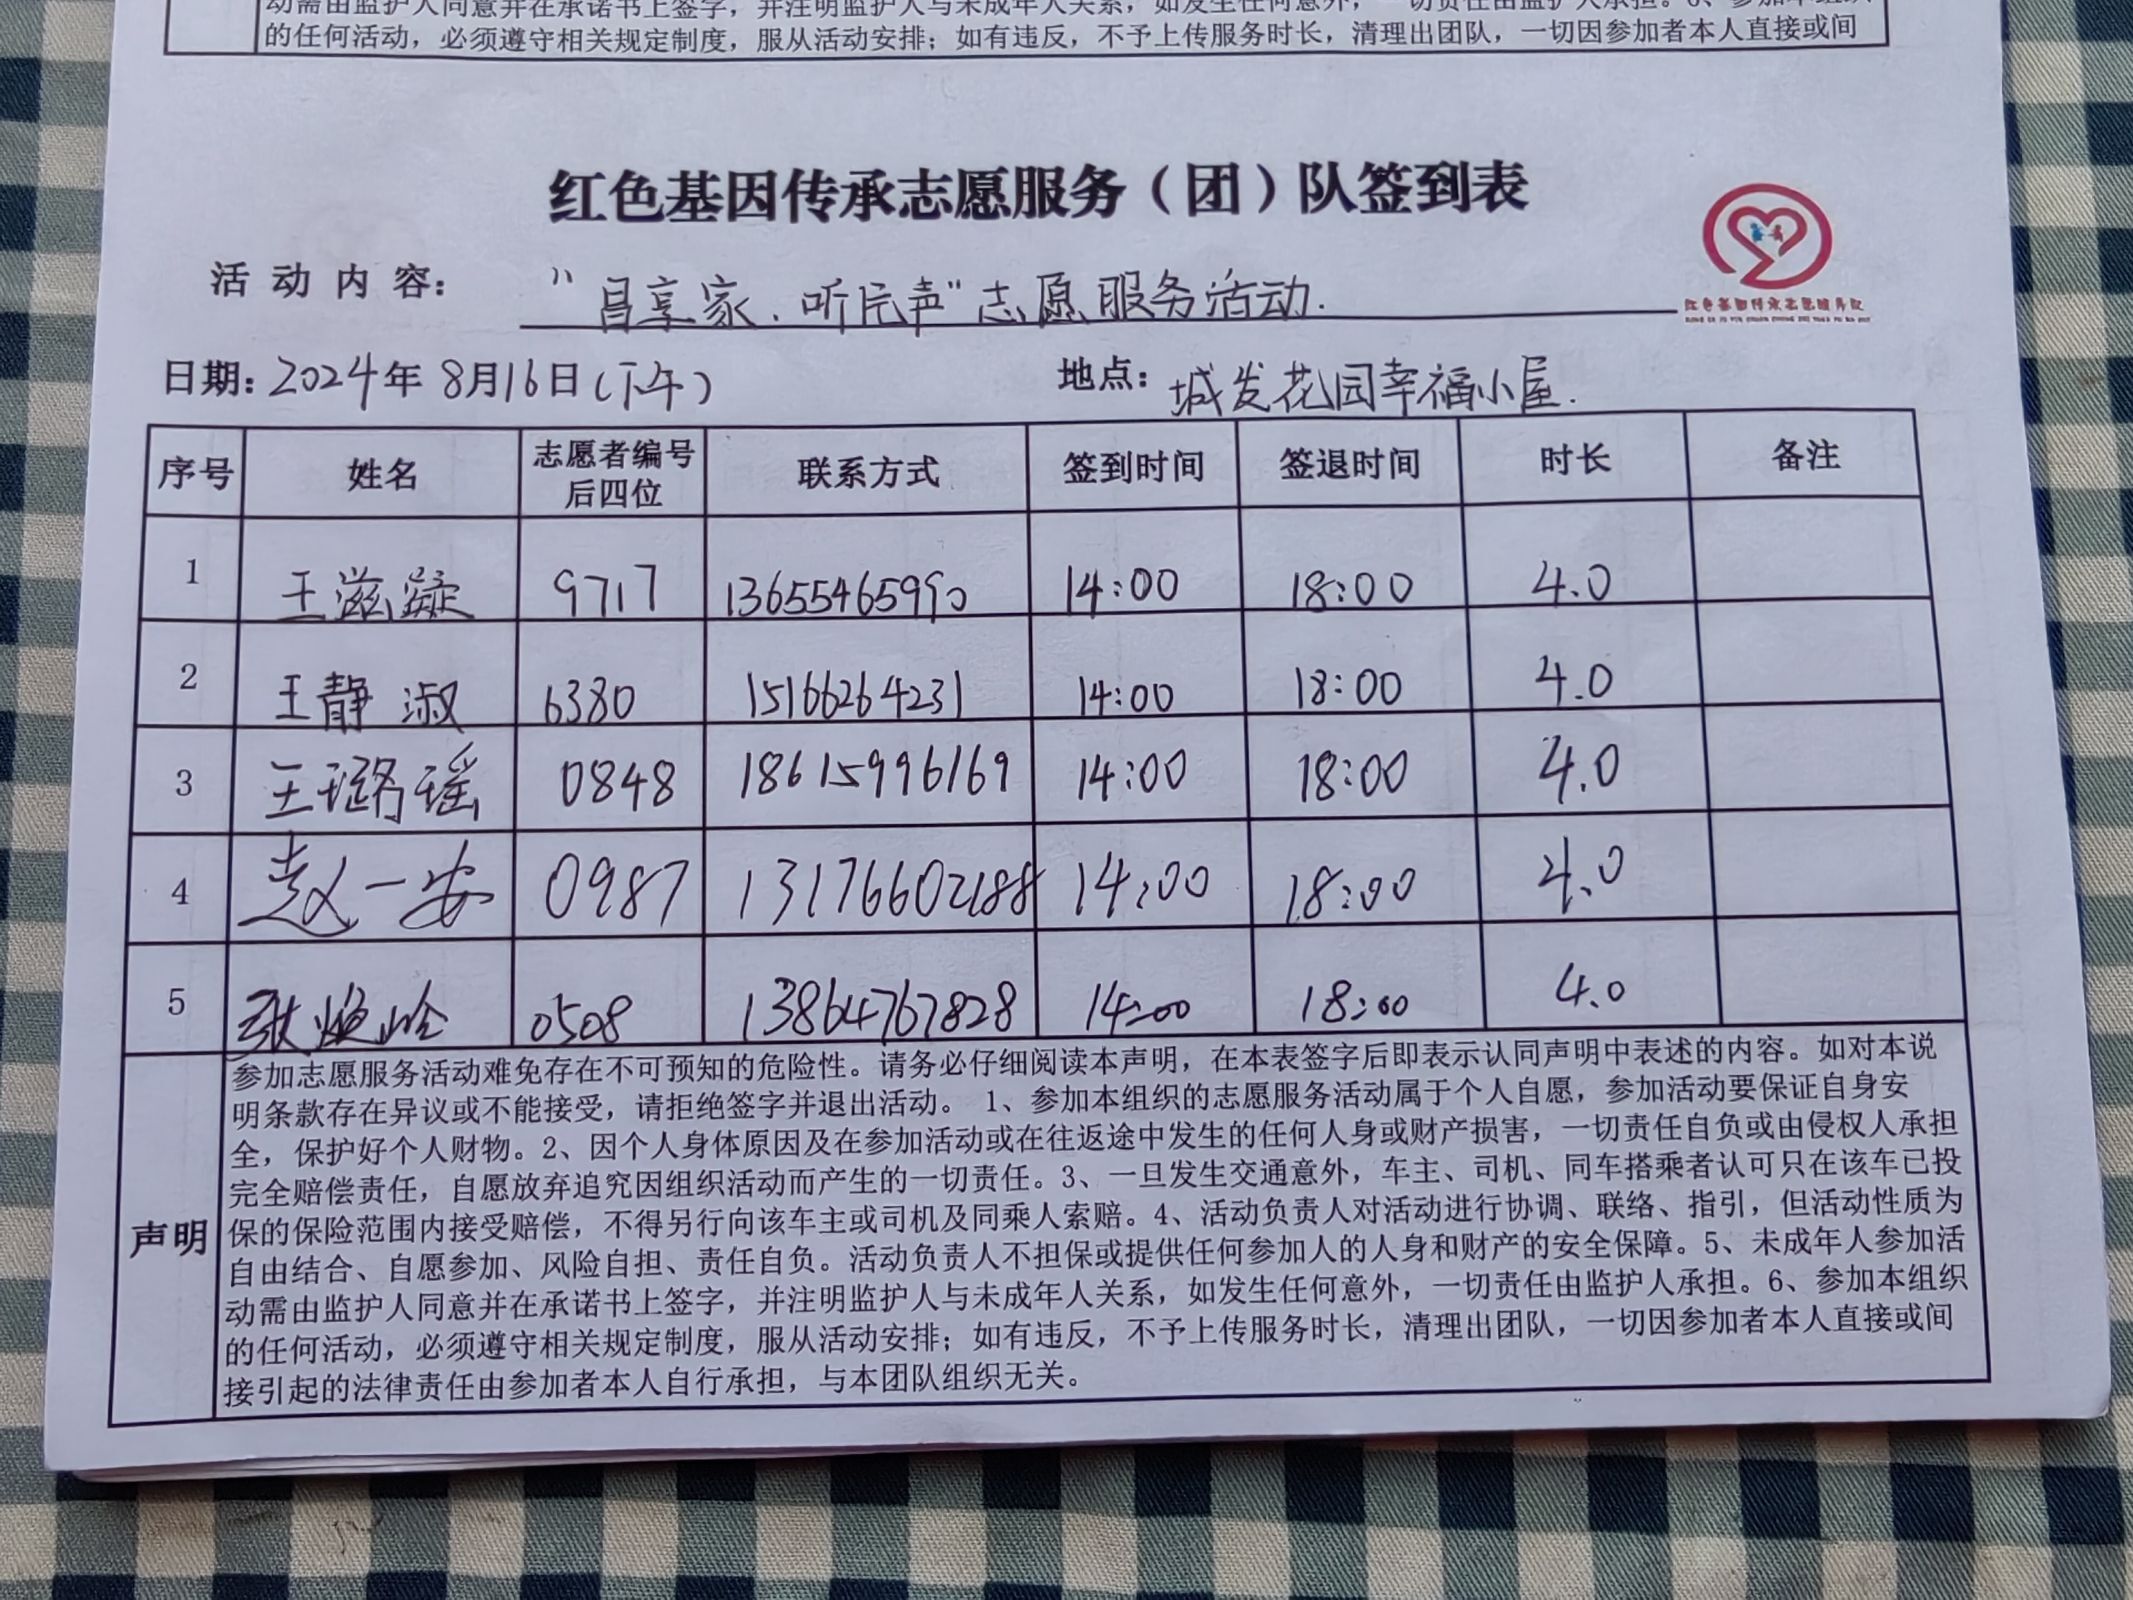 动需由监护人同意并在承诺书上签字，并注明监护人与未成年人关系，如发生任何意外，一切责任由监护人承担。6、参加本组织
的任何活动，必须遵守相关规定制度，服从活动安排；如有违反，不予上传服务时长，清理出团队，一切因参加者本人直接或间
红色基因传承志愿服务（团）队签到表
红色基因传承志愿服务队
活动内容： “昌享家、听民声”志愿服务活动.
日期：2024年8月16日(下午) 地点：城发花园幸福小屋.
序号 姓名 志愿者编号后四位 联系方式 签到时间 签退时间 时长 备注
1 王滋凝 9717 13655465990 14:00 18:00 4.0
2 王静淑 6380 15166264231 14:00 18:00 4.0
3 王璐瑶 0848 18615996169 14:00 18:00 4.0
4 赵一安 0987 13176602188 14:00 18:00 4.0
5 张焕岭 0508 13864767828 14:00 18:00 4.0
声明
参加志愿服务活动难免存在不可预知的危险性。请务必仔细阅读本声明，在本表签字后即表示认同声明中表述的内容。如对本说
明条款存在异议或不能接受，请拒绝签字并退出活动。 1、参加本组织的志愿服务活动属于个人自愿，参加活动要保证自身安
全，保护好个人财物。2、因个人身体原因及在参加活动或在往返途中发生的任何人身或财产损害，一切责任自负或由侵权人承担
完全赔偿责任，自愿放弃追究因组织活动而产生的一切责任。3、一旦发生交通意外，车主、司机、同车搭乘者认可只在该车已投
保的保险范围内接受赔偿，不得另行向该车主或司机及同乘人索赔。4、活动负责人对活动进行协调、联络、指引，但活动性质为
自由结合、自愿参加、风险自担、责任自负。活动负责人不担保或提供任何参加人的人身和财产的安全保障。5、未成年人参加活
动需由监护人同意并在承诺书上签字，并注明监护人与未成年人关系，如发生任何意外，一切责任由监护人承担。6、参加本组织
的任何活动，必须遵守相关规定制度，服从活动安排；如有违反，不予上传服务时长，清理出团队，一切因参加者本人直接或间
接引起的法律责任由参加者本人自行承担，与本团队组织无关。